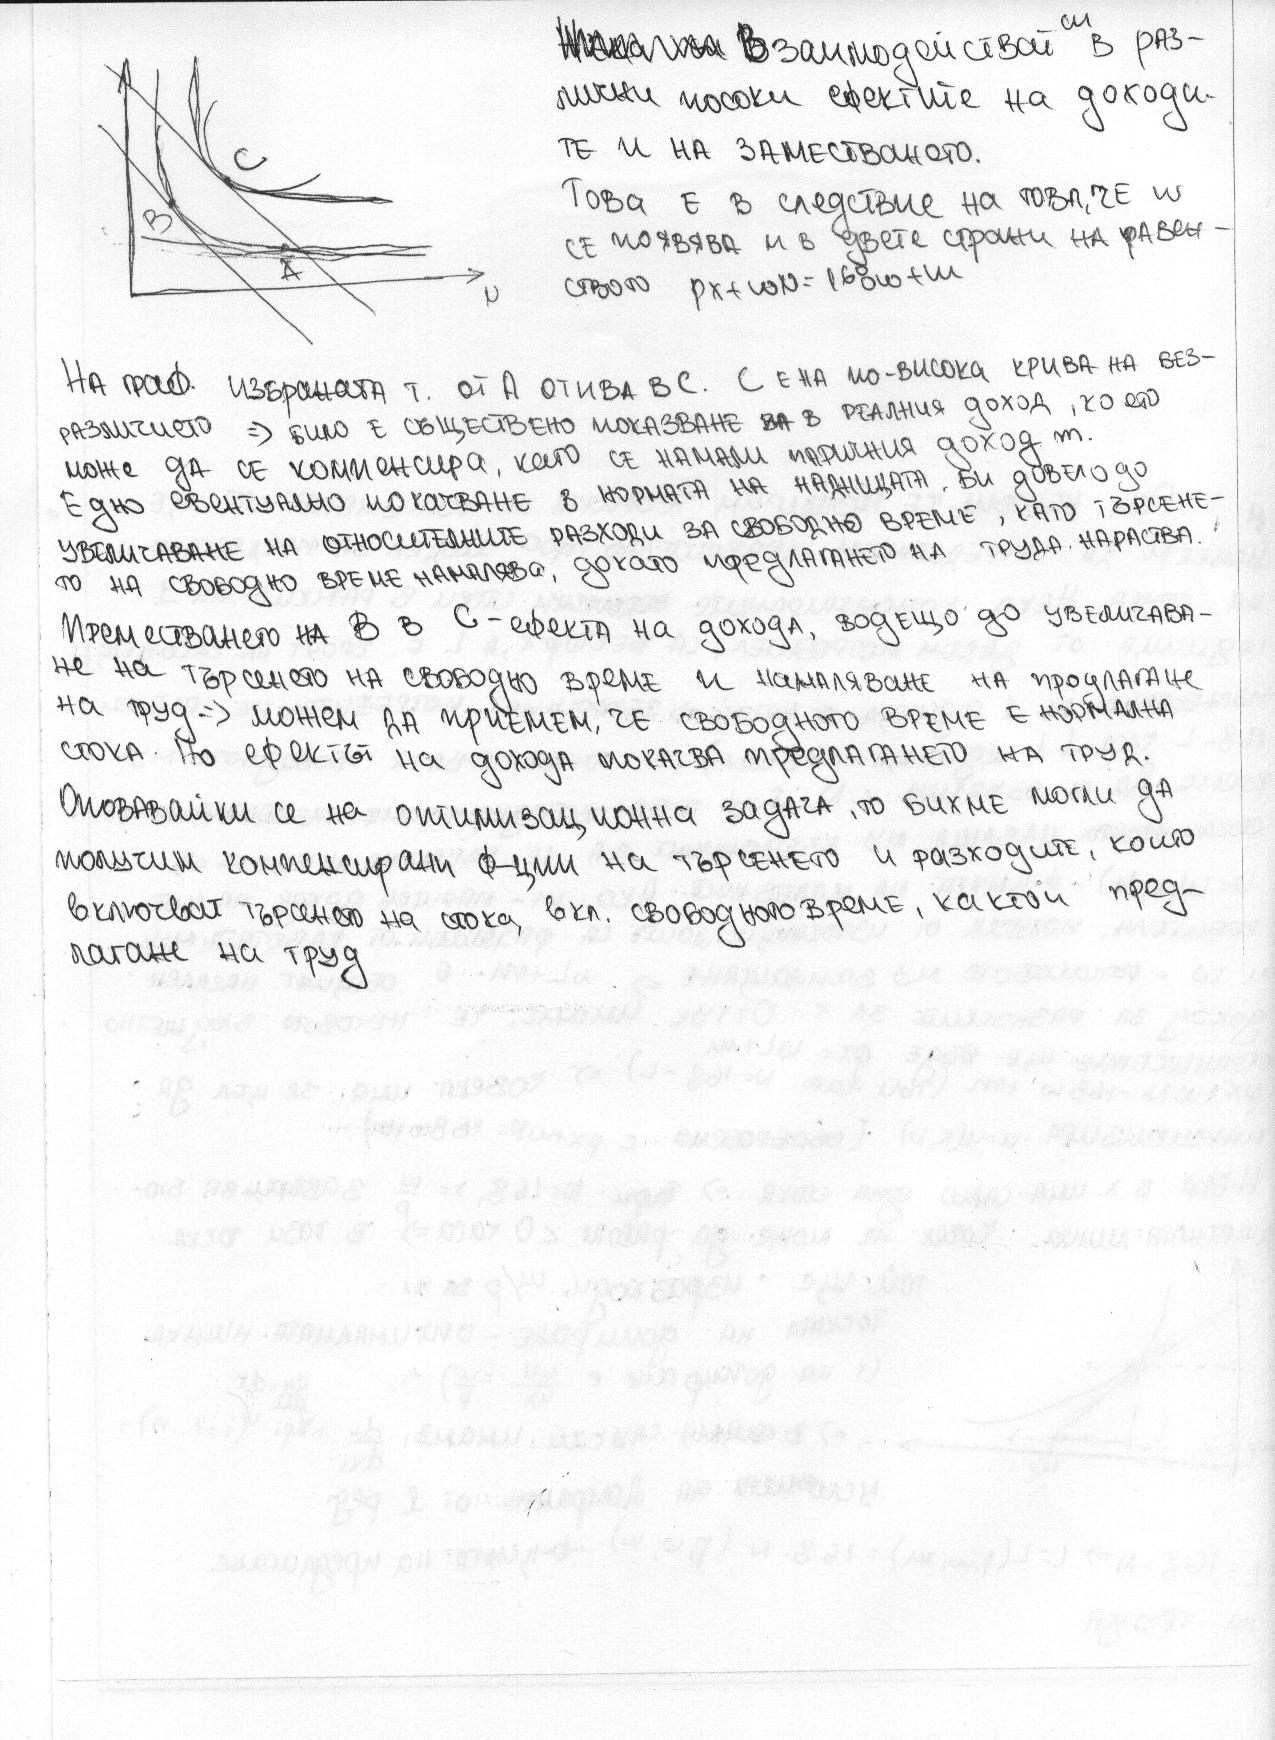 Взаимодействат си в раз-
лични посоки ефектите на доходи-
те и на заместването.
Това е в следствие на това, че w
се появява и в двете страни на равен-
ството px+wN=168w+m
C
B
A
N
На граф. избраната т. от А отива в С. С е на по-висока крива на без-
различието => било е съществено показване в реалния доход, което
може да се компенсира, като се намали паричния доход m.
Едно евентуално покачване в нормата на надницата, би довело до
увеличаване на относителните разходи за свободно време, като търсене-
то на свободно време намалява, докато предлагането на труда нараства.
Преместването на В в С - ефекта на дохода, водещо до увеличава-
не на търсенето на свободно време и намаляване на продлагане
на труд => можем да приемем, че свободното време е нормална
стока. По ефектът на дохода покачва предлагането на труд.
Оповавайки се на оптимизационна задача, то бихме могли да
получим компенсирани ф-ции на търсенето и разходите, които
включват търсенето на стока, вкл. свободното време, както и пред-
лагане на труд